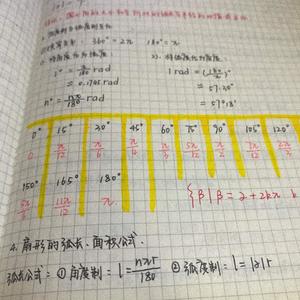 360° = 2π 180° = π
1° = π/180 rad
1 rad = (180/π)°
= 0.1745 rad
= 57.30°
n° = nπ/180 rad
= 57°18'
0° 15° 30° 45° 60° 75° 90° 105° 120°
0 π/12 π/6 π/4 π/3 5π/12 π/2 7π/12 2π/3
150° 165° 180°
5π/6 11π/12 π
{β|β = α + 2kπ, k
4. 扇形的弧长、面积公式.
弧长公式: ① 角度制: l = nπr/180 ② 弧度制: l = |α|r